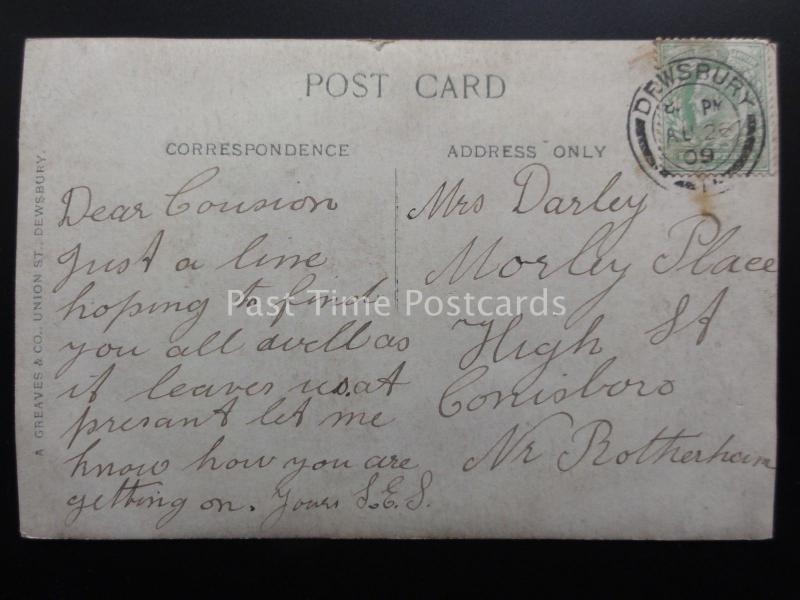 POST CARD
DEWSBURY
PM
AU 26
09
CORRESPONDENCE
ADDRESS ONLY
Dear Cousion
Just a line
hoping to find
you all awell as
it leaves us at
presant let me
know how you are
getting on. Yours S.E.S.
Mrs Darley
Morley Place
High St
Conisboro
Nr Rotherham
A GREAVES & CO., UNION ST., DEWSBURY.
Past Time Postcards